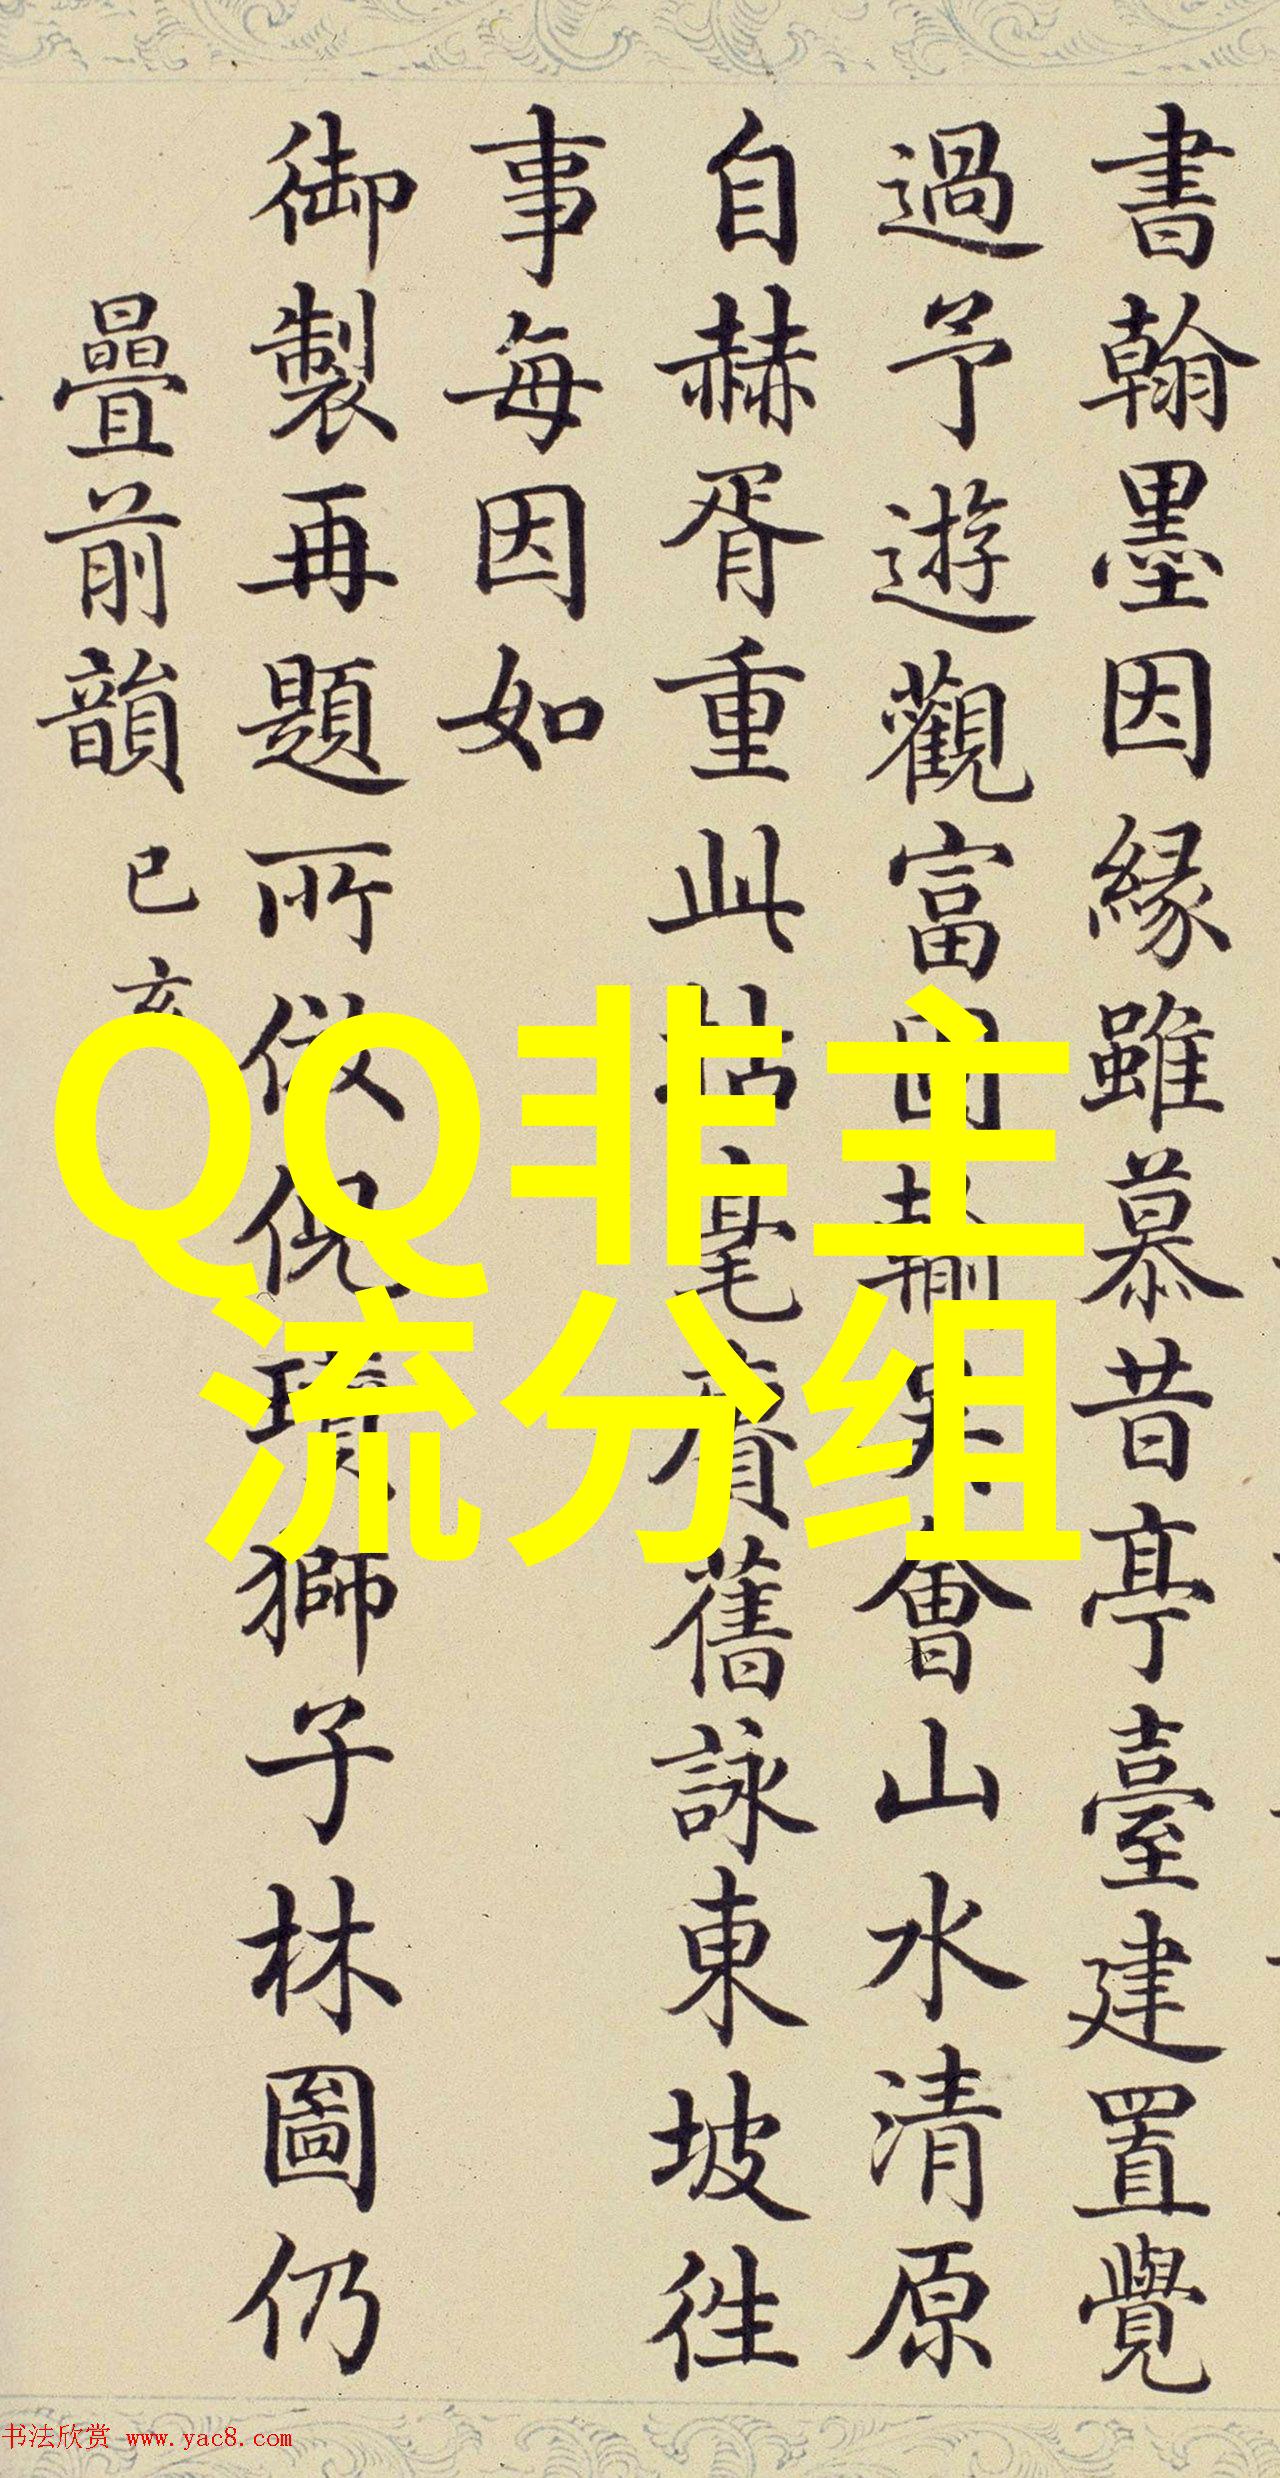 書翰墨因緣雖慕昔亭臺建置覺
過予遊觀富會山水清原
自赫胥重此拈毫賡舊詠東坡徃
事每因如
御製再題所倣倪瓚獅子林圖仍
疊前韻 已亥
QQ非主
流分组
书法欣赏 www.yac8.com